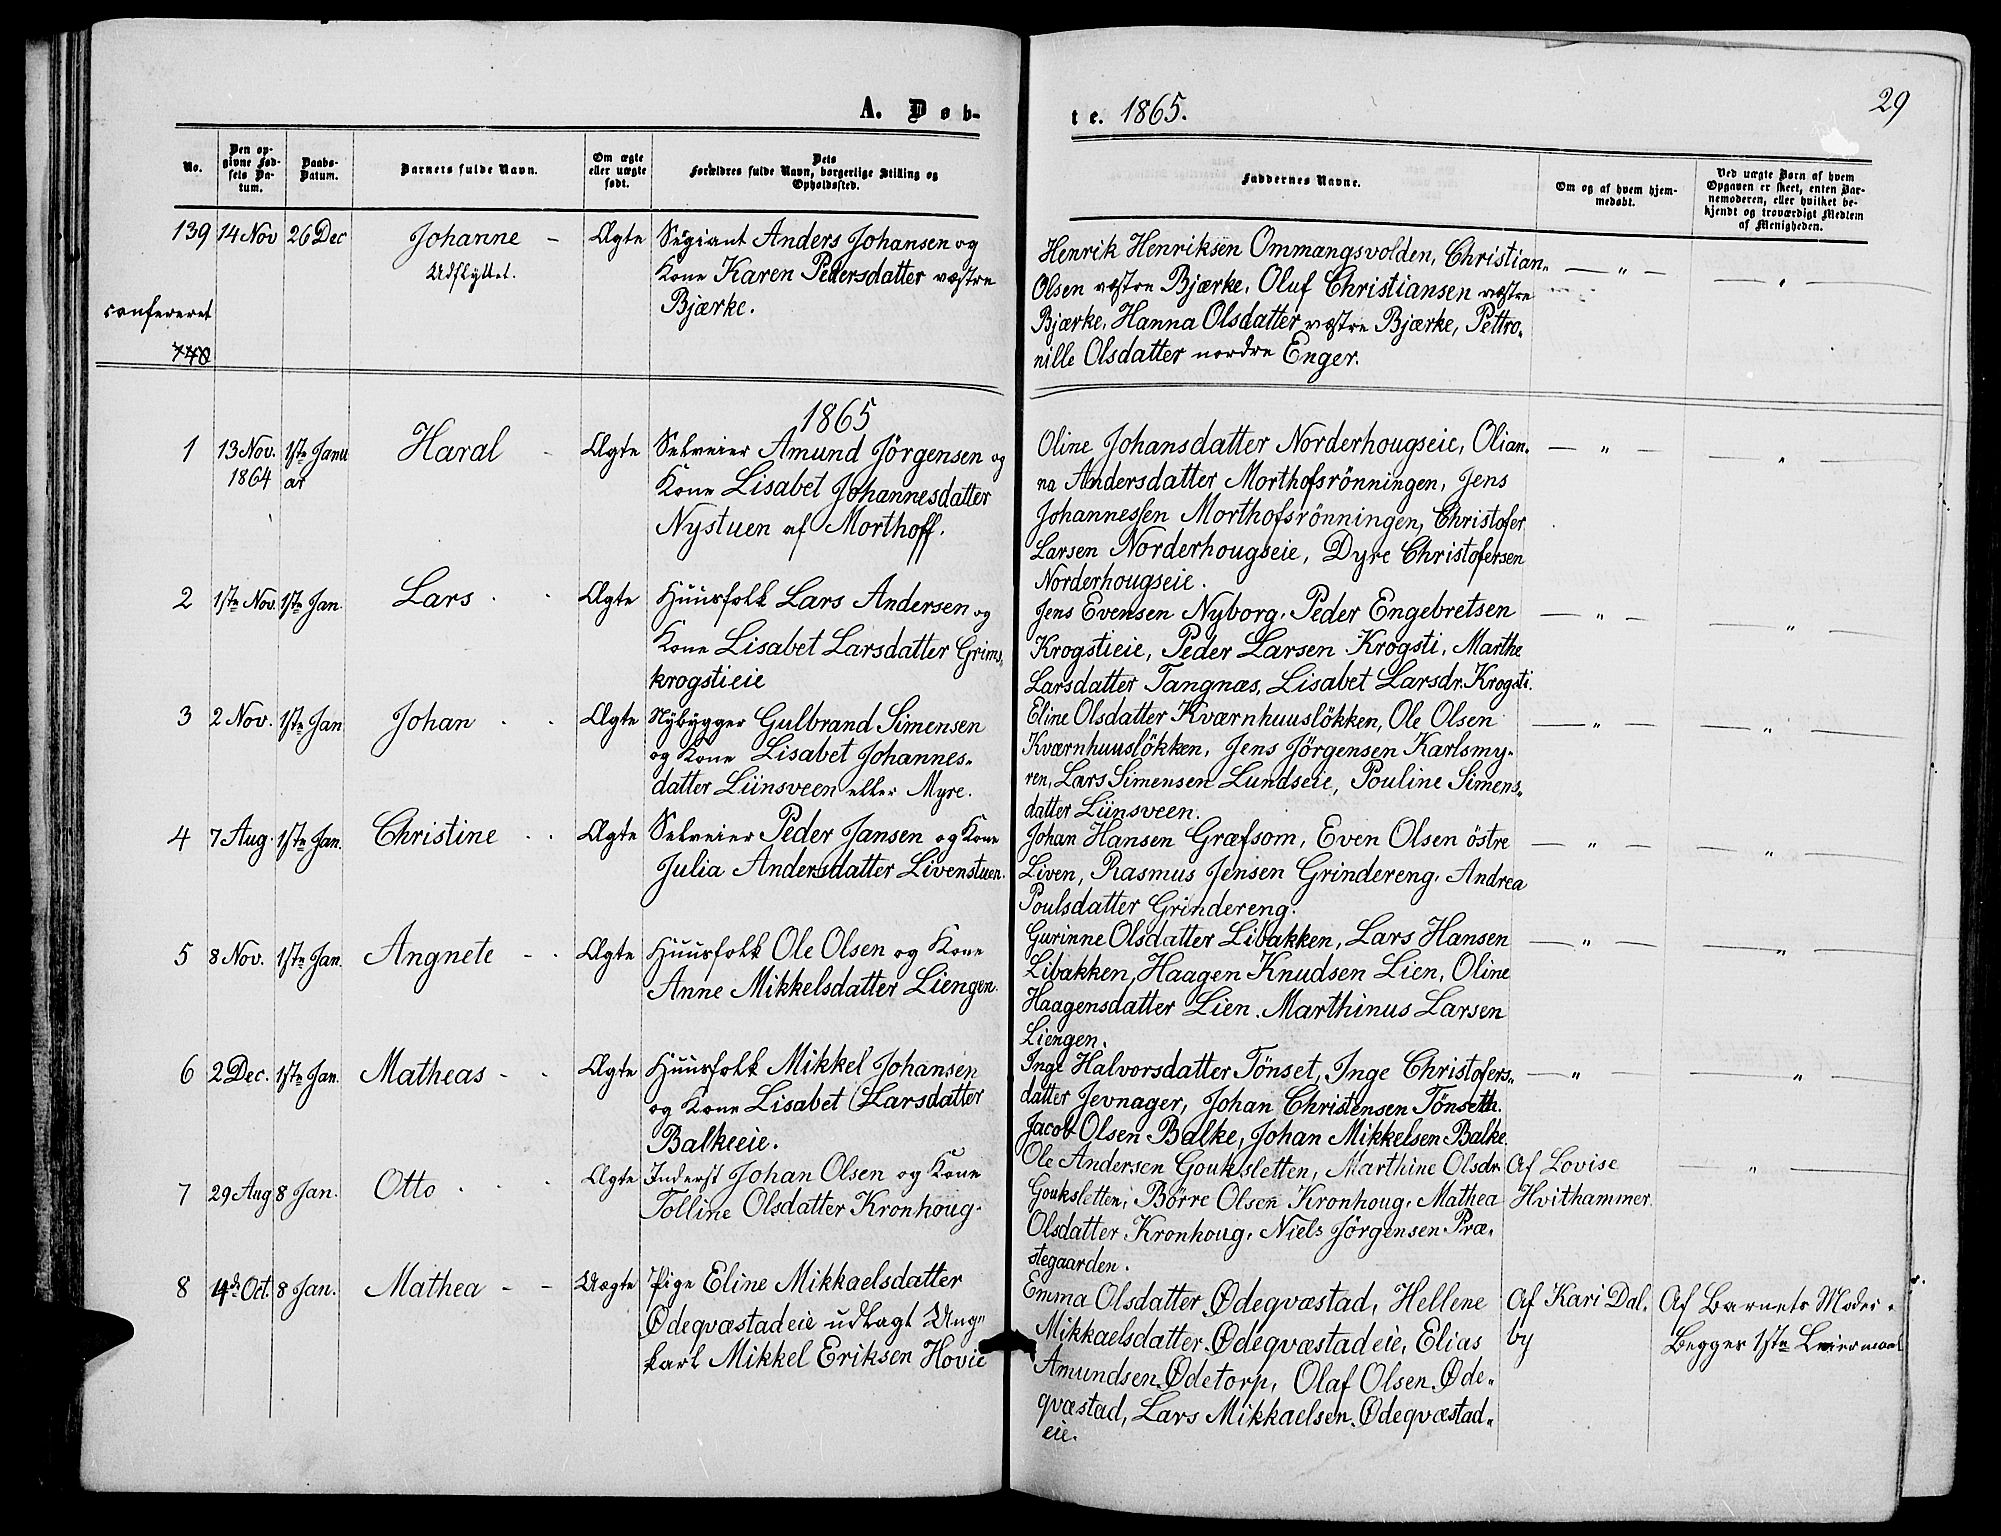 A. Døb-
No.
Den op-
givne Fød-
sels Da-
tum.
Daabs-
Datum.
Barnets fulde Navn.
Om ægte
eller uægte
født.
Dets
Forældres fulde Navn, borgerlige Stilling og
Opholdssted.
139 14 Nov 26 Dec Johanne - Ægte Segiant Anders Johansen og
Udflyttet. Kone Karen Pedersdatter væstre
Bjærke.
confereret
140
1865
1 13 Nov. 1ste Janu Haral - Ægte Selveier Amund Jörgensen og
1864 ar Kone Lisabet Johannesdatter
Nystuen af Morthoff.
2 1ste Nov. 1ste Jan. Lars Ægte Huusfolk Lars Andersen og
Kone Lisabet Larsdatter Grims,
krogstieie
3 2 Nov. 1ste Jan Johan Ægte Nybygger Gulbrand Simensen
og Kone Lisabet Johannes-
datter Liinsveen eller Myre.
4 7 Aug. 1ste Jan. Christine Ægte Selveier Peder Jansen og Kone
Julia Andersdatter Livenstuen.
5 8 Nov. 1ste Jan. Angnete - Ægte Huusfolk Ole Olsen og Kone
Anne Mikkelsdatter Liengen.
6 2 Dec. 1ste Jan. Matheas - Ægte Huusfolk Mikkel Johansen
og Kone Lisabet Larsdatter
Balkeeie.
7 29 Aug 8 Jan. Otto Ægte Inderst Johan Olsen og Kone
Tolline Olsdatter Kronhoug.
8 4de Oct. 8 Jan. Mathea - - Uægte Pige Eline Mikkaelsdatter
Ødeqvæstadeie udlagt Ung-
karl Mikkel Eriksen Hovie
te. 1865.
29
Faddernes Navne.
Om og af hvem hjem-
medøbt.
Ved uægte Børn af hvem
Opgaven er skeet, enten Bar-
nemoderen, eller hvilket be-
kjendt og troværdigt Medlem
af Menigheden.
Henrik Henriksen Ommangsvolden, Christian- — " — — " —
Olsen væstre Bjærke, Oluf Christiansen væstre
Bjærke, Hanna Olsdatter væstre Bjærke, Pettro-
nille Olsdatter nordre Enger.
Oline Johansdatter Norderhougseie, Olian- — " — — " —
na Andersdatter Morthofsrönningen, Jens
Johannessen Morthofsrönningen, Christofer
Larsen Norderhougseie, Dyre Christofersen
Norderhougseie.
Jens Evensen Nyborg, Peder Engebretsen — " — — " —
Krogstieie, Peder Larsen Krogsti, Marthe
Larsdatter Tangnæs, Lisabet Larsdr. Krogsti.
Eline Olsdatter Kværnhuuslökken, Ole Olsen — " — — " —
Kværnhuuslökken, Jens Jörgensen Karlsmy-
ren, Lars Simensen Lundseie, Pouline Simens-
datter Liinsveen.
Johan Hansen Græfsom, Even Olsen östre — " — — " —
Liven, Rasmus Jensen Grindereng, Andrea
Poulsdatter Grindereng.
Gurinne Olsdatter Libakken, Lars Hansen — " — — " —
Libakken, Haagen Knudsen Lien, Oline
Haagensdatter Lien. Marthinus Larsen
Liengen.
Inge Halvorsdatter Tönset, Inge Christofers- — " — — " —
datter Jevnager, Johan Christensen Tönseth.
Jacob Olsen Balke, Johan Mikkelsen Balke.
Ole Andersen Gouksletten, Marthine Olsdr. Af Lovise — " —
Gouksletten, Börre Olsen Kronhoug, Mathea Hvithammer.
Olsdatter Kronhoug, Niels Jörgensen Præ-
stegaarden.
Emma Olsdatter Ødeqvæstad, Hellene Af Kari Dal- Af Barnets Moder.
Mikkaelsdatter Ødeqvæstadeie, Elias by Begges 1ste Leiermaal
Amundsen Ødetorp, Olaf Olsen Øde-
qvæstad, Lars Mikkaelsen Ødeqvæstad-
eie.